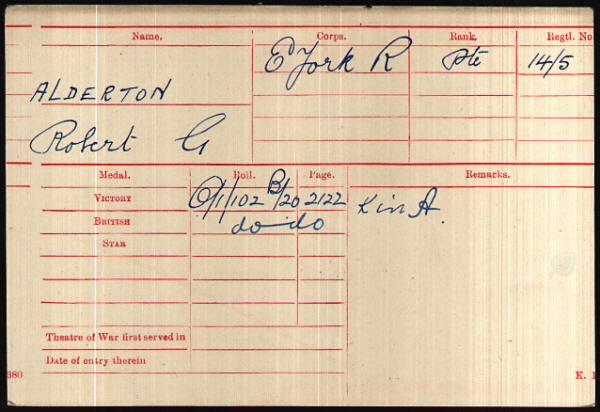 Name. Corps. Rank. Regtl. No
E York R Pte 14/5
ALDERTON
Robert G
Medal. Roll. Page. Remarks.
VICTORY O/1/102 B/20 2122 Kin A.
BRITISH do do
STAR
Theatre of War first served in
Date of entry therein
380 K. 1